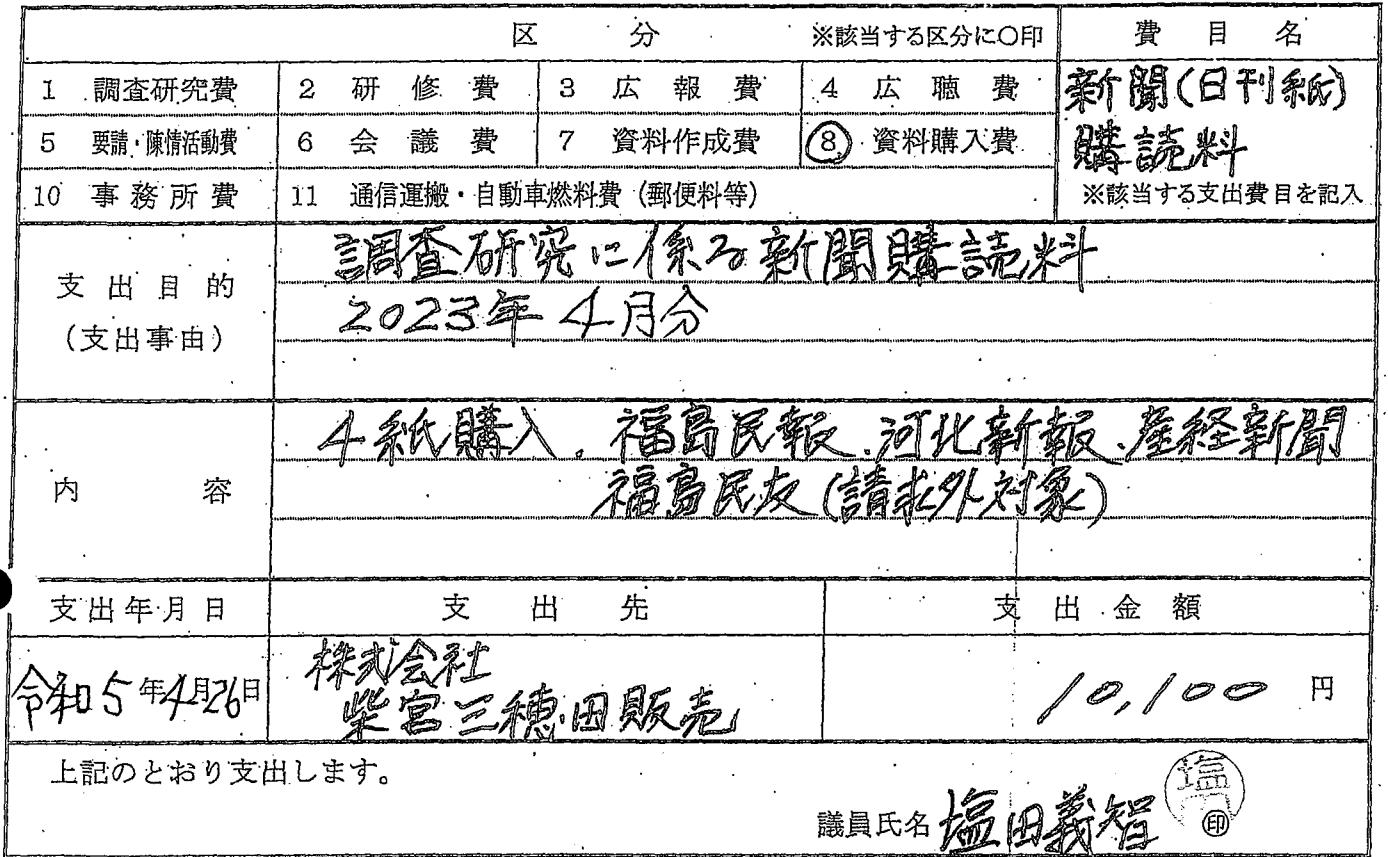 区分 ※該当する区分に○印 費目名
1 調査研究費 2 研修費 3 広報費 4 広聴費 新聞(日刊紙)
5 要請・陳情活動費 6 会議費 7 資料作成費 ⑧ 資料購入費 購読料
10 事務所費 11 通信運搬・自動車燃料費(郵便料等) ※該当する支出費目を記入
支出目的
(支出事由)
調査研究に係る新聞購読料
2023年4月分
内容
4紙購入、福島民報、河北新報、産経新聞
福島民友(請求外対象)
支出年月日 支出先 支出金額
令和5年4月26日
株式会社
柴宮三穂田販売
10,100円
上記のとおり支出します。
議員氏名 塩田義智 ㊞
塩